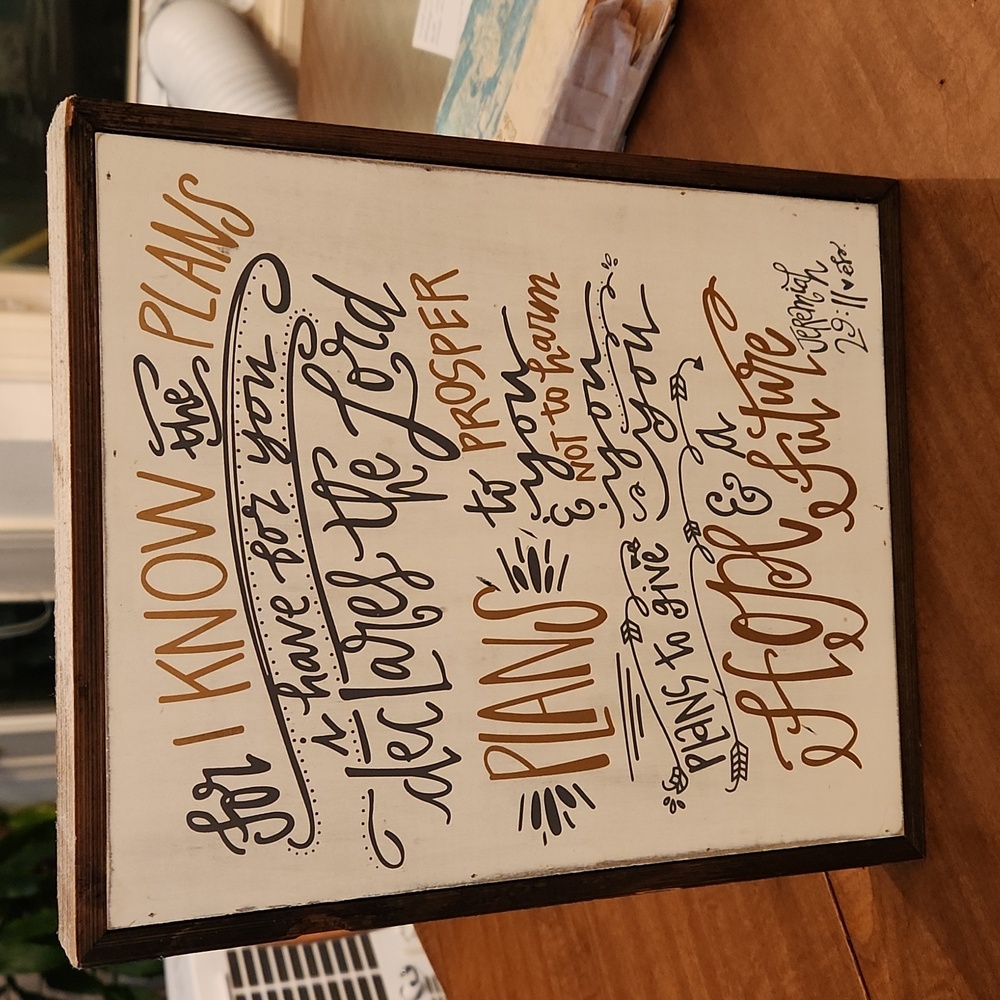 for I KNOW the PLANS
i have for you
declares the Lord
PLANS to PROSPER
you
& NOT to harm
you
PLANS to give you
Hope & a
future
JEREMIAH
29:11